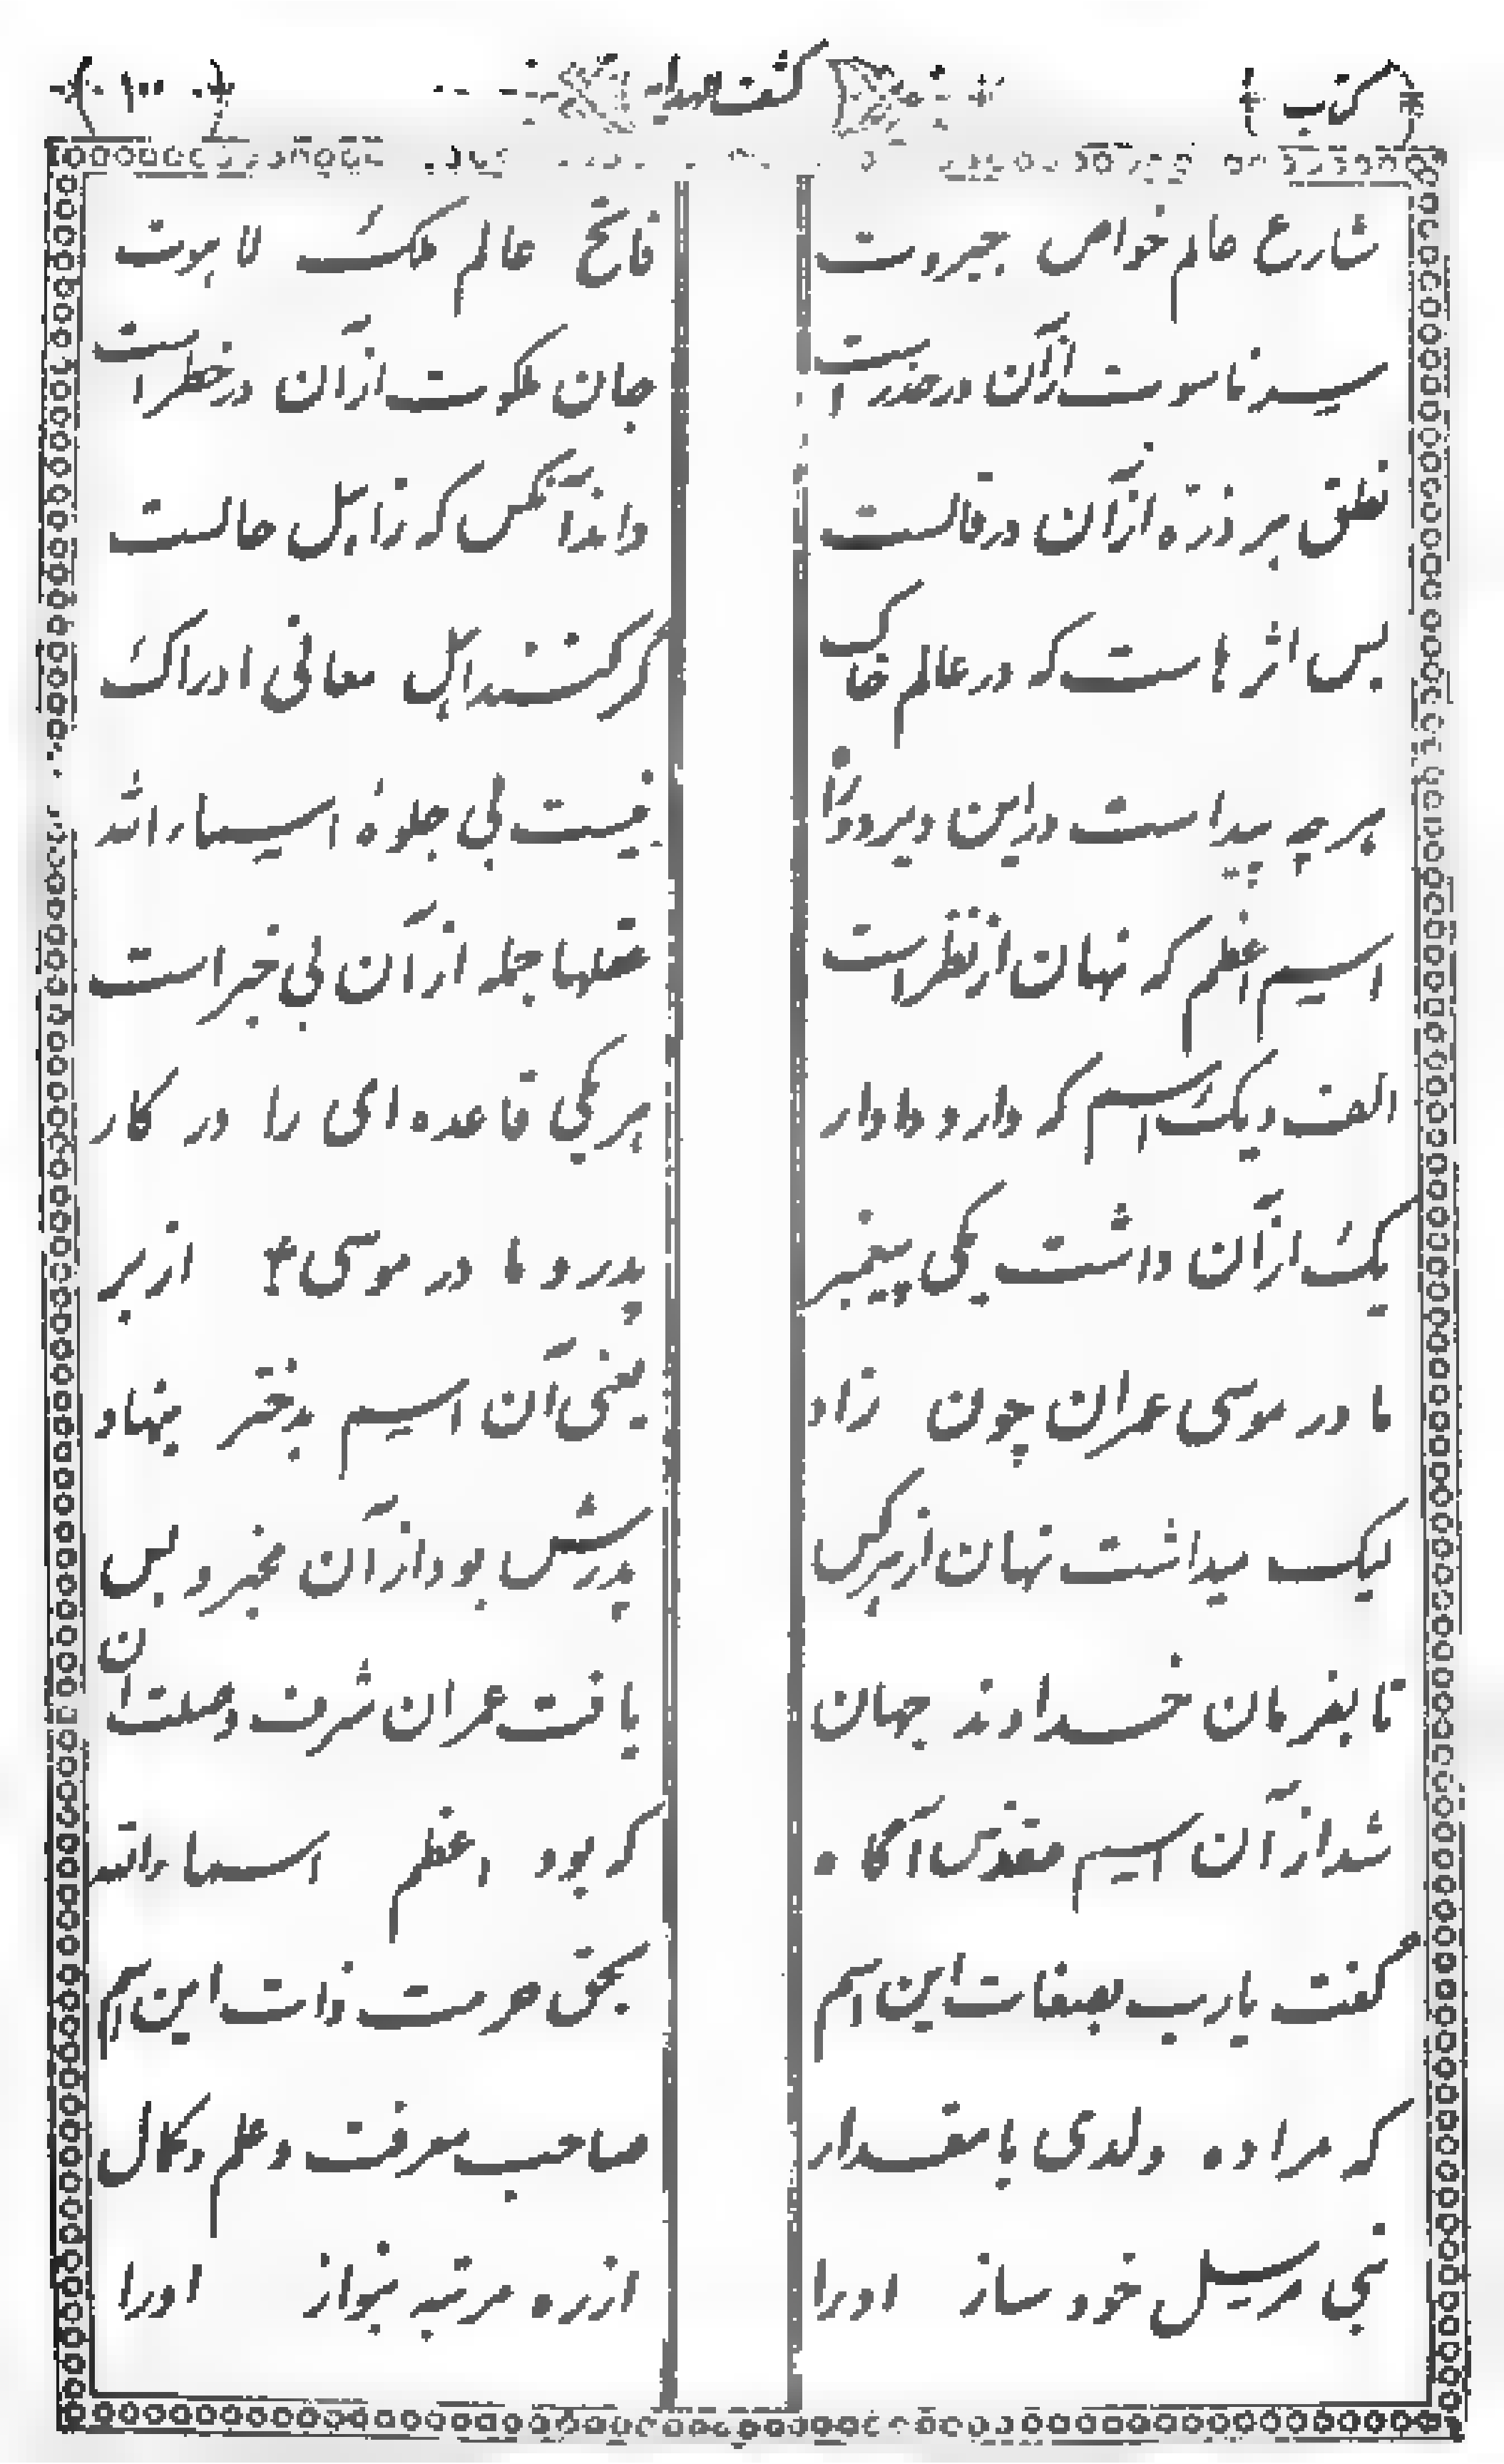 کتاب کشف الهدایه ۱۰۰
شارع عالم خواص جبروت فاتح عالم ملک لاهوت
سیر ناسوت ازآن درحذر است جان ملکوت ازآن درخطر است
نطق هر ذرّه ازآن درقالست داندآنکس که زاهل حالست
بس اثر هاست که در عالم خاک گر کنند اهل معانی ادراک
هر چه پیداست دراین دیر دوتا نیست بی جلوهٔ اسماءالله
اسم اعظم که نهان ازنظر است عقلها جمله ازآن بی خبر است
الف و یک اسم که دارد دادار هر یکی قاعده ای را در کار
یک ازآن داشت یکی پیغمبر پدر و ما در موسی ۴ از بر
ما در موسی عمران چون زاد یعنی آن اسم بدختر بنهاد
لیک میداشت نهان ازهرکس پدرش بود ازآن مخبر و بس
تا بفرمان خداوند جهان یافت عمران شرف وصلت آن
شد ازآن اسم مقدّس آگاه که بود اعظم اسماءالله
گفت یارب بصفات این اسم بحق حرمت ذات این اسم
که مرا ده ولدی با مقدار صاحب معرفت و علم و کمال
نبی مرسل خود ساز اورا ازره مرتبه بنواز اورا